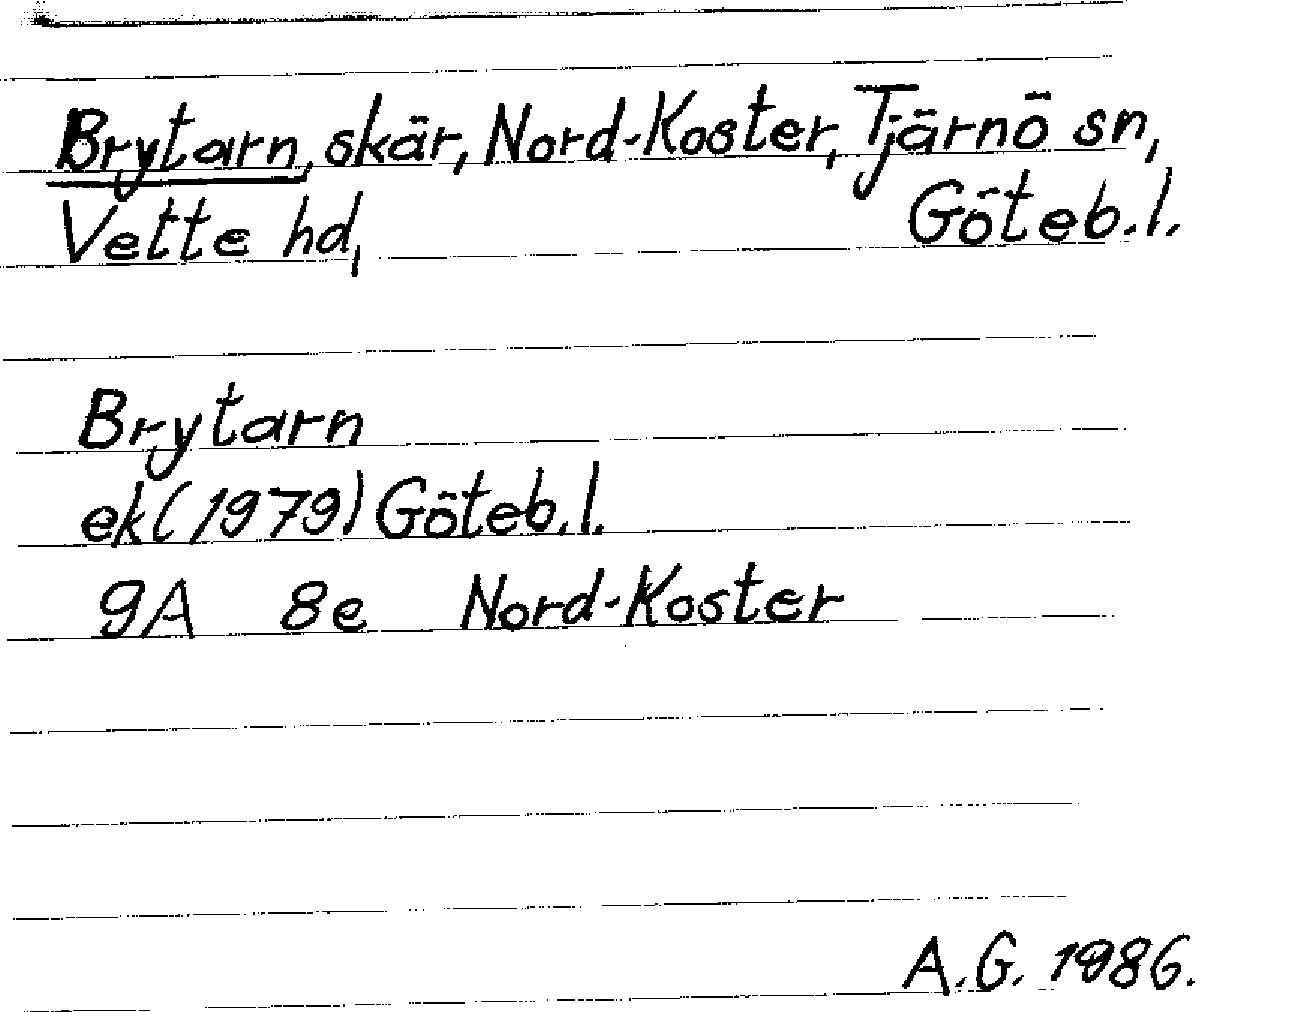 Brytarn, skär, Nord-Koster, Tjärnö sn,
Vette hd, Göteb.l.
Brytarn
ek(1979) Göteb.l.
9A 8e Nord-Koster
A.G. 1986.